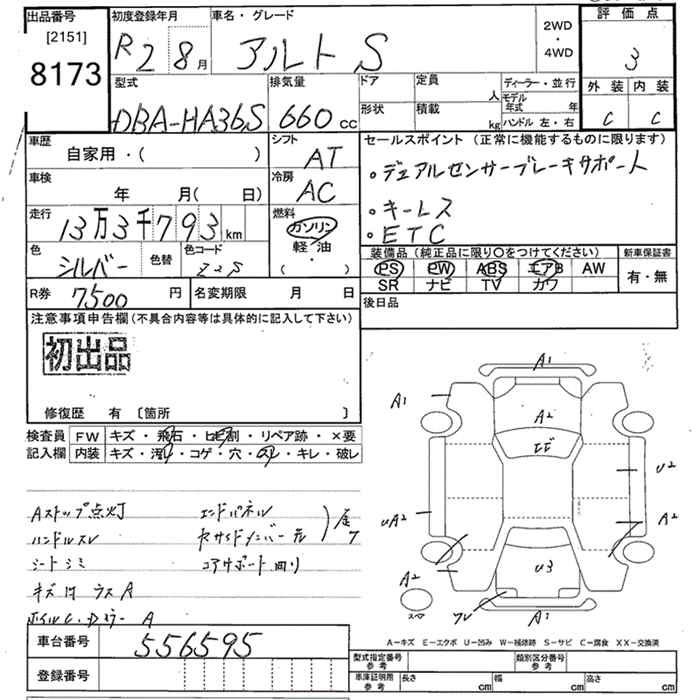 出品番号
[2151]
8173
初度登録年月
R2 8月
車名・グレード
アルト S
2WD
・
4WD
評価点
3
外装 内装
C C
型式
DBA-HA36S
排気量
660 cc
ドア
形状
定員
人
積載
kg
ディーラー・並行
モデル年式 年
ハンドル 左・右
車歴
自家用・( )
シフト
AT
車検
年 月( 日)
冷房
AC
走行
13万3千793 km
燃料
ガソリン
軽・油
・( )
色
シルバー
色替
色コード
Z2S
R券 7,500 円
名変期限 月 日
セールスポイント (正常に機能するものに限ります)
・デュアルセンサーブレーキサポート
・キーレス
・ETC
装備品 (純正品に限り○をつけてください)
PS PW ABS エアB AW
SR ナビ TV カワ
新車保証書
有・無
後日品
注意事項申告欄(不具合内容等は具体的に記入して下さい)
初出品
修復歴 有 〔箇所 〕
検査員記入欄
FW キズ・飛石・ヒビ割・リペア跡・×要
内装 キズ・汚れ・コゲ・穴・スレ・キレ・破レ
Aストップ点灯
ハンドルスレ
シートシミ
キズ内ウスA
エンドパネル
コアサポート回り
A1
A1
A2
U2
UA2
A2
A2
U3
A1
車台番号 556595
登録番号
A-キズ E-エクボ U-凹み W-補修跡 S-サビ C-腐食 XX-交換済
型式指定番号 参考
類別区分番号 参考
車庫証明用 参考
長さ cm
幅 cm
高さ cm